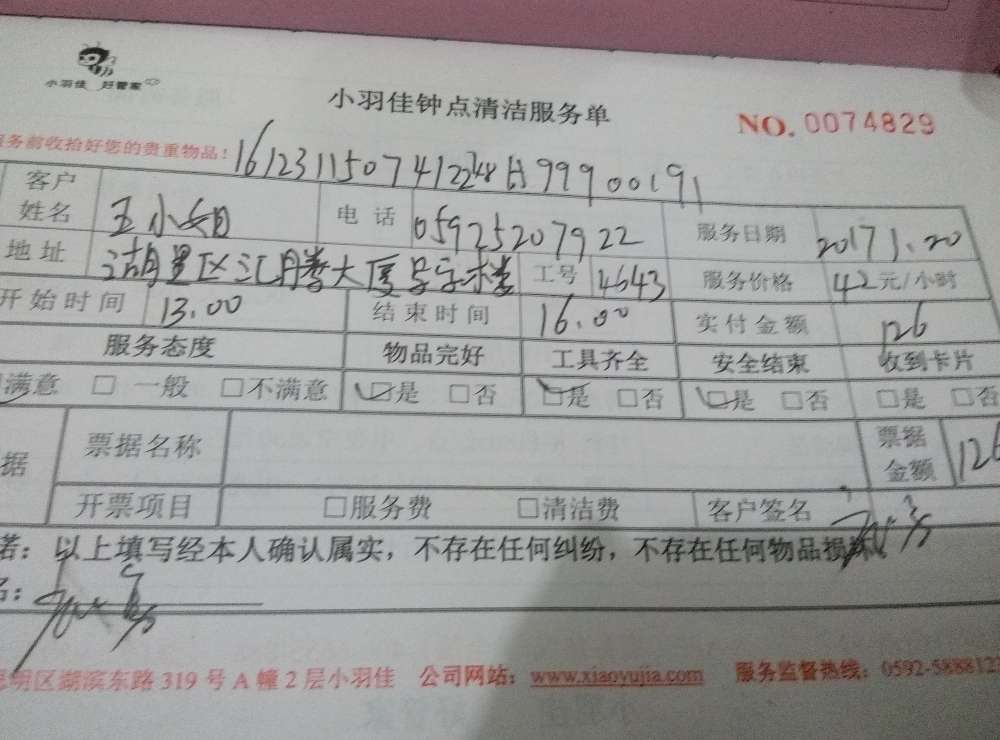 小羽佳 好管家
小羽佳钟点清洁服务单
NO. 0074829
服务前收拾好您的贵重物品！
客户姓名 王小姐 电话 05925207922 服务日期 2017 1.20
地址 湖里区汇腾大厦写字楼 工号 4643 服务价格 42元/小时
开始时间 13.00 结束时间 16.00 实付金额 126
服务态度 物品完好 工具齐全 安全结束 收到卡片
满意 □ 一般 □不满意 □是 □否 □是 □否 □是 □否 □是 □否
据 票据名称 票据金额 126
开票项目 □服务费 □清洁费 客户签名
诺：以上填写经本人确认属实，不存在任何纠纷，不存在任何物品损
名：
思明区湖滨东路 319 号 A 幢 2 层小羽佳 公司网站：www.xiaoyujia.com 服务监督热线：0592-5888122